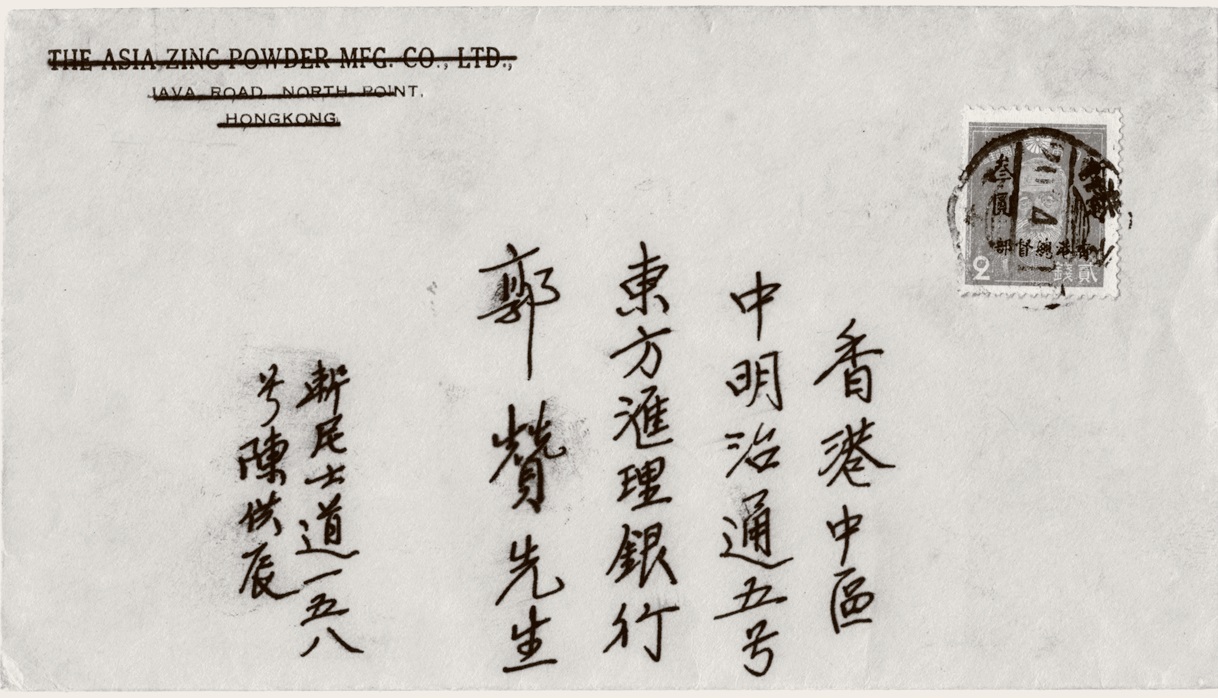 THE ASIA ZINC POWDER MFG. CO., LTD.,
JAVA ROAD, NORTH POINT,
HONGKONG.
香港中區
中明治通五号
東方滙理銀行
郭贊先生
士道一五八
号陳供辰
叁圓
部督總港香
2